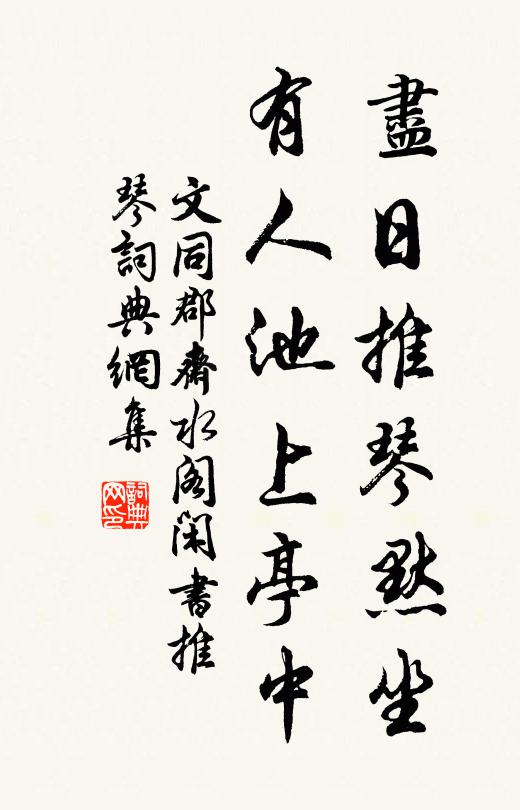 盡日推琴默坐
有人池上亭中
文同郡齋水閣閑書推
琴詞典網集
詞典網印